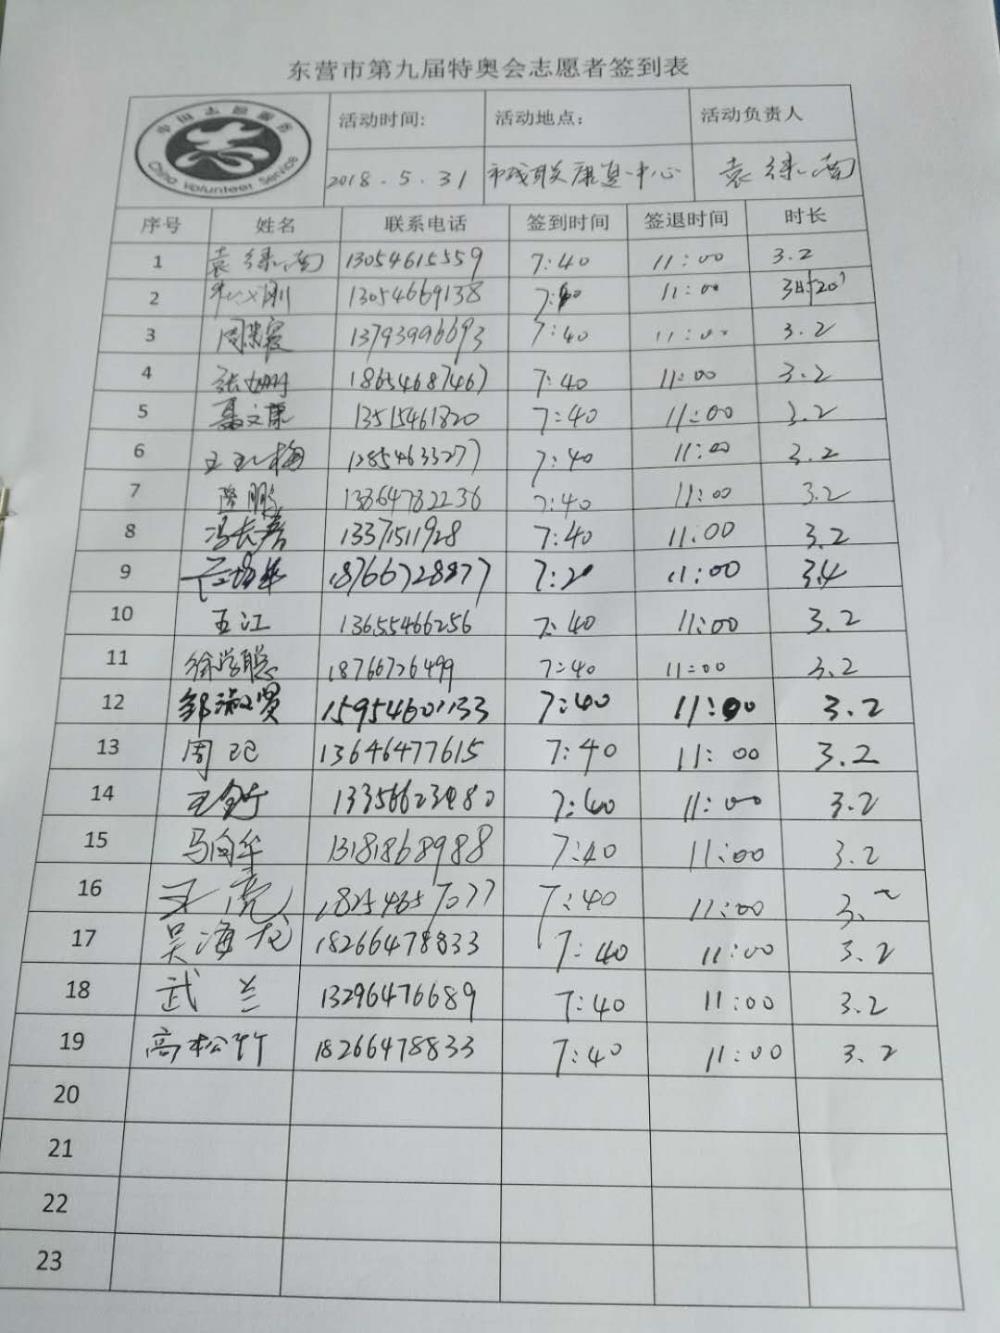 东营市第九届特奥会志愿者签到表
中国志愿服务
China Volunteer Service
活动时间: 活动地点: 活动负责人
2018.5.31 市残联康复中心 袁绿南
序号 姓名 联系电话 签到时间 签退时间 时长
1 袁绿南 13054615559 7:40 11:00 3.2
2 13054669138 7:40 11:00 3时20'
3 13793996693 7:40 11:00 3.2
4 18654687467 7:40 11:00 3.2
5 聂文康 13515461820 7:40 11:00 3.2
6 王玉梅 7:40 11:00 3.2
7 隋鹏 13864782236 7:40 11:00 3.2
8 冯长彦 13371511928 7:40 11:00 3.2
9 18766728877 7:20 11:00 3.4
10 王江 13655466256 7:40 11:00 3.2
11 徐学聪 18766726499 7:40 11:00 3.2
12 邹淑贤 15954601133 7:40 11:00 3.2
13 周玘 13646477615 7:40 11:00 3.2
14 7:40 11:00 3.2
15 马向华 13181868988 7:40 11:00 3.2
16 王亮 18254657077 7:40 11:00 3.2
17 吴海龙 18266478833 7:40 11:00 3.2
18 武兰 13296476689 7:40 11:00 3.2
19 高松竹 18266478833 7:40 11:00 3.2
20
21
22
23